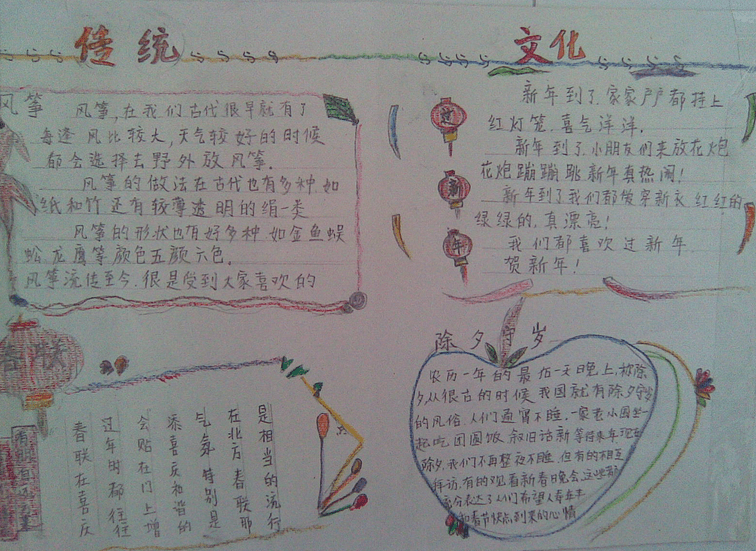 传统
文化
风筝
风筝,在我们古代很早就有了
每逢风比较大,天气较好的时候
都会选择去野外放风筝.
风筝的做法在古代也有多种如
纸和竹还有较薄透明的绢一类
风筝的形状也有好多种如金鱼蜈
蚣龙鹰等颜色五颜六色.
风筝流传至今.很是受到大家喜欢的
过
新
年
新年到了,家家户户都挂上
红灯笼.喜气洋洋.
新年到了,小朋友们来放花炮
花炮蹦蹦跳新年真热闹!
新年到了我们都爱穿新衣红红的
绿绿的,真漂亮!
我们都喜欢过新年.
贺新年!
春联
春联在喜庆
过年时都往往
会贴在门上增
添喜庆和谐的
气氛特别是
在北方春联那
是相当的流行
除夕守岁
农历一年的最后一天晚上,被除
夕,从很古的时候,我国就有除夕守岁
的风俗.人们通宵不睡,一家老小围坐一
起吃团圆饭叙旧话新等待来年现在
除夕.我们不再整夜不睡.但有的相互
拜访,有的观看新春晚会,这些都
充分表达了人们希望人寿年丰
和春节快点到来的心情